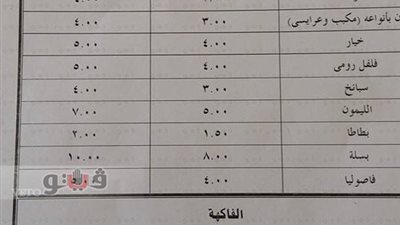 بأنواعه (مكيب وعرايسى) ٣.٠٠ ٤.٠٠
خيار ٤.٠٠ ٥.٠٠
فلفل رومى ٤.٠٠ ٥.٠٠
سبانخ ٣.٠٠ ٤.٠٠
الليمون ٥.٠٠ ٧.٠٠
بطاطا ١.٥٠ ٢.٠٠
بسلة ٨.٠٠ ١٠.٠٠
فاصوليا ٤.٠٠
ڤيتو
VETO
الفاكهة